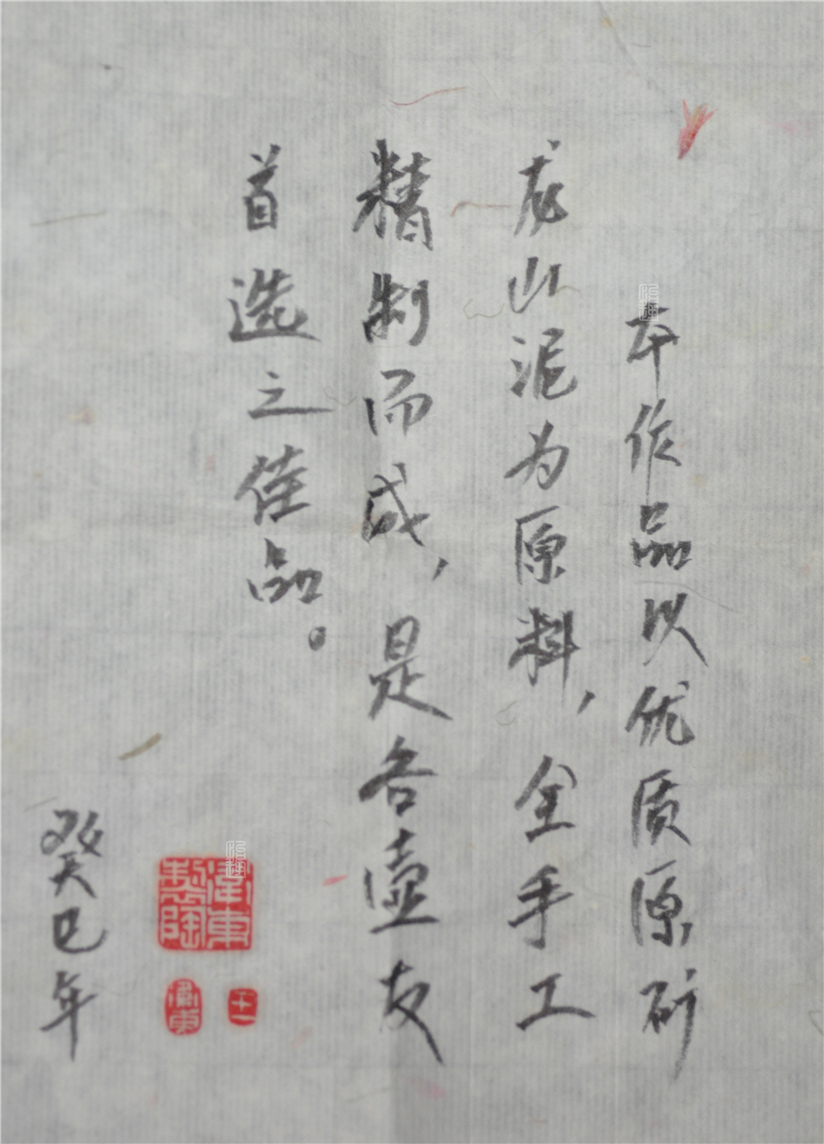 本作品以优质原矿
龙山泥为原料，全手工
精制而成，是各壶友
首选之佳品。
癸巳年